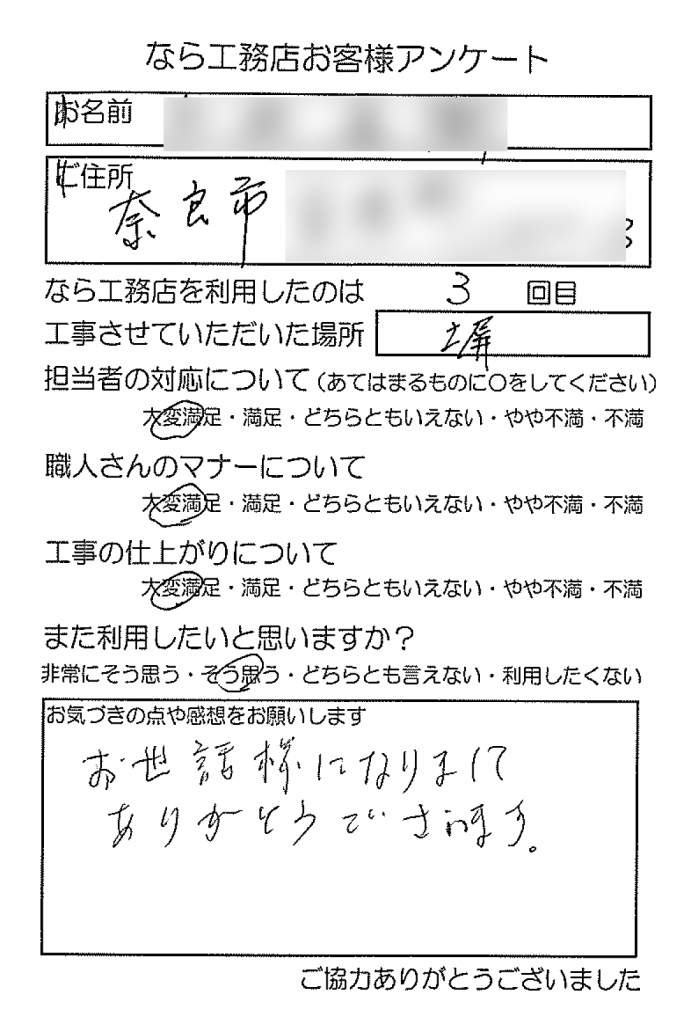 なら工務店お客様アンケート
お名前
ご住所
奈良市
なら工務店を利用したのは 3 回目
工事させていただいた場所 塀
担当者の対応について(あてはまるものに○をしてください)
大変満足・満足・どちらともいえない・やや不満・不満
職人さんのマナーについて
大変満足・満足・どちらともいえない・やや不満・不満
工事の仕上がりについて
大変満足・満足・どちらともいえない・やや不満・不満
また利用したいと思いますか?
非常にそう思う・そう思う・どちらとも言えない・利用したくない
お気づきの点や感想をお願いします
お世話様になりまして
ありがとうございます。
ご協力ありがとうございました